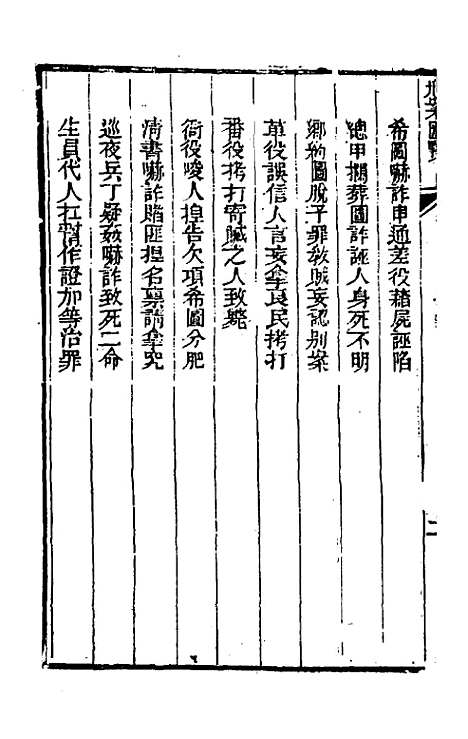 希圖嚇詐串通差役藉屍誣陷
總甲攔葬圖詐誣人身死不明
鄉約圖脫子罪教賊妄認別案
革役誤信人言妄拿良民拷打
番役拷打寄贓之人致斃
衙役唆人捏告欠項希圖分肥
清書嚇詐賭匪捏名稟請拿究
巡夜兵丁疑姦嚇詐致死二命
生員代人扛幫作證加等治罪